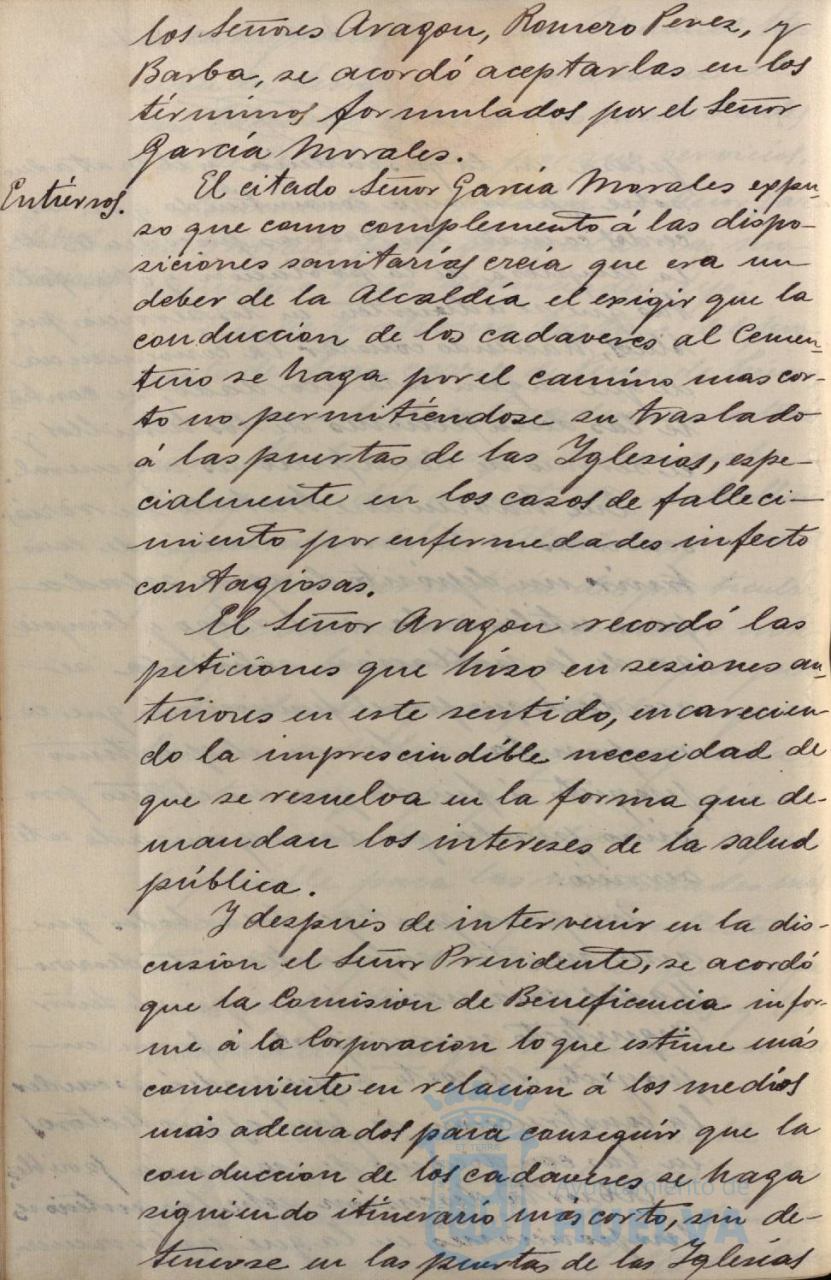 los Señores Aragon, Romero Perez, y
Barba, se acordó aceptarlas en los
términos formulados por el Señor
García Morales.
Entiérros.
El citado Señor García Morales expu-
so que como complemento á las dispo-
siciones sanitarias creía que era un
deber de la Alcaldía el exigir que la
conduccion de los cadaveres al Cemen-
terio se haga por el camino mas cor-
to no permitiéndose su traslado
á las puertas de las Iglesias, espe-
cialmente en los casos de falleci-
miento por enfermedades infecto
contagiosas.
El Señor Aragon recordó las
peticiones que hizo en sesiones an-
teriores en este sentido, encarecien-
do la imprescindible necesidad de
que se resuelva en la forma que de-
mandan los intereses de la salud
pública.
Y después de intervenir en la dis-
cusion el Señor Presidente, se acordó
que la Comision de Beneficencia infor-
me á la Corporacion lo que estime más
conveniente en relacion á los medios
más adecuados para conseguir que la
conduccion de los cadaveres se haga
siguiendo itinerario más corto, sin de-
tenerse en las puertas de las Iglesias
Ayuntamiento de
HUELVA